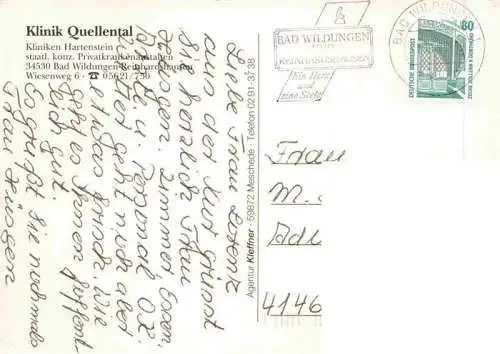 Klinik Quellental
Kliniken Hartenstein
staatl. konz. Privatkrankenanstalten
34530 Bad Wildungen-Reinhardshausen
Wiesenweg 6 · ☎ 05621/750
Liebe Frau
aus der Kur grüsst
Sie herzlich Frau
Zimmer Essen,
u. Personal O.K.
geht noch aber
etwas grind. Wie
geht es Ihnen hoffent-
lich gut.
Es grüßt Sie nochmals
Frau
Agentur Kieffner · 59872 Meschede · Telefon 02 91-37 38
BAD WILDUNGEN
REINHARDSHAUSEN
Ein Herz
und
eine Seele
BAD WILDUNGEN 1
DEUTSCHE BUNDESPOST
80
Frau
M.
Adl
4146